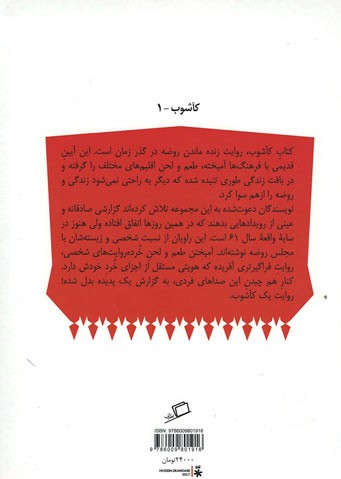 کآشوب - ۱
کتاب کآشوب، روایت زنده ماندن روضه در گذر زمان است. این آیینِ
قدیمی با فرهنگ‌ها آمیخته، طعم و لحن اقلیم‌های مختلف را گرفته و
در بافت زندگی طوری تنیده شده که دیگر به راحتی نمی‌شود زندگی و
روضه را ازهم سوا کرد.
نویسندگان دعوت‌شده به این مجموعه تلاش کرده‌اند گزارشی صادقانه و
عینی از رویدادهایی بدهند که در همین روزها اتفاق افتاده ولی هنوز در
سایهٔ واقعهٔ سال ۶۱ است. این راویان از نسبت شخصی و زیسته‌شان با
مجلس روضه نوشته‌اند. آمیختن طعم و لحنِ خُرده‌روایت‌های شخصی،
روایتِ فراگیرتری آفریده که هویتی مستقل از اجزای خُردِ خودش دارد.
کنار هم چیدن این صداهای فردی، به گزارش یک پدیده بدل شده؛
روایت یک کآشوب.
ISBN: 9786009801916
9 786009 801916
۲۴۰۰۰تومان
HOSSEIN.ESKANDARI
2017